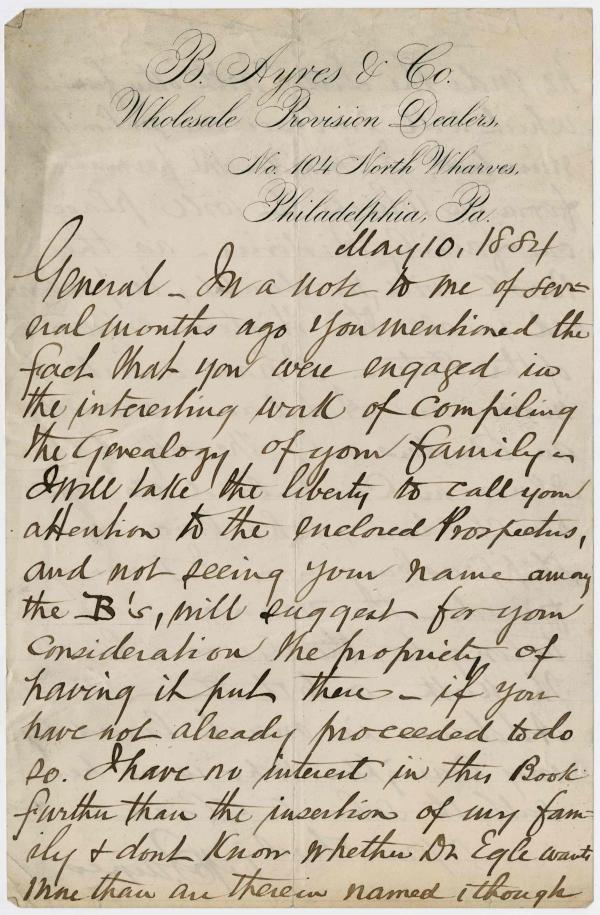 B. Ayres & Co.
Wholesale Provision Dealers,
No. 104 North Wharves,
Philadelphia, Pa.
May 10, 1884
General - In a note to me of sev=
eral months ago you mentioned the
fact that you were engaged in
the interesting work of compiling
the Genealogy of your family -
I will take the liberty to call your
attention to the enclosed Prospectus,
and not seeing your name among
the B's, will suggest for your
consideration the propriety of
having it put there - if you
have not already proceeded to do
so. I have no interest in this Book
further than the insertion of my fam-
ily & dont Know whether Dr Egle wants
more than are therein named, though